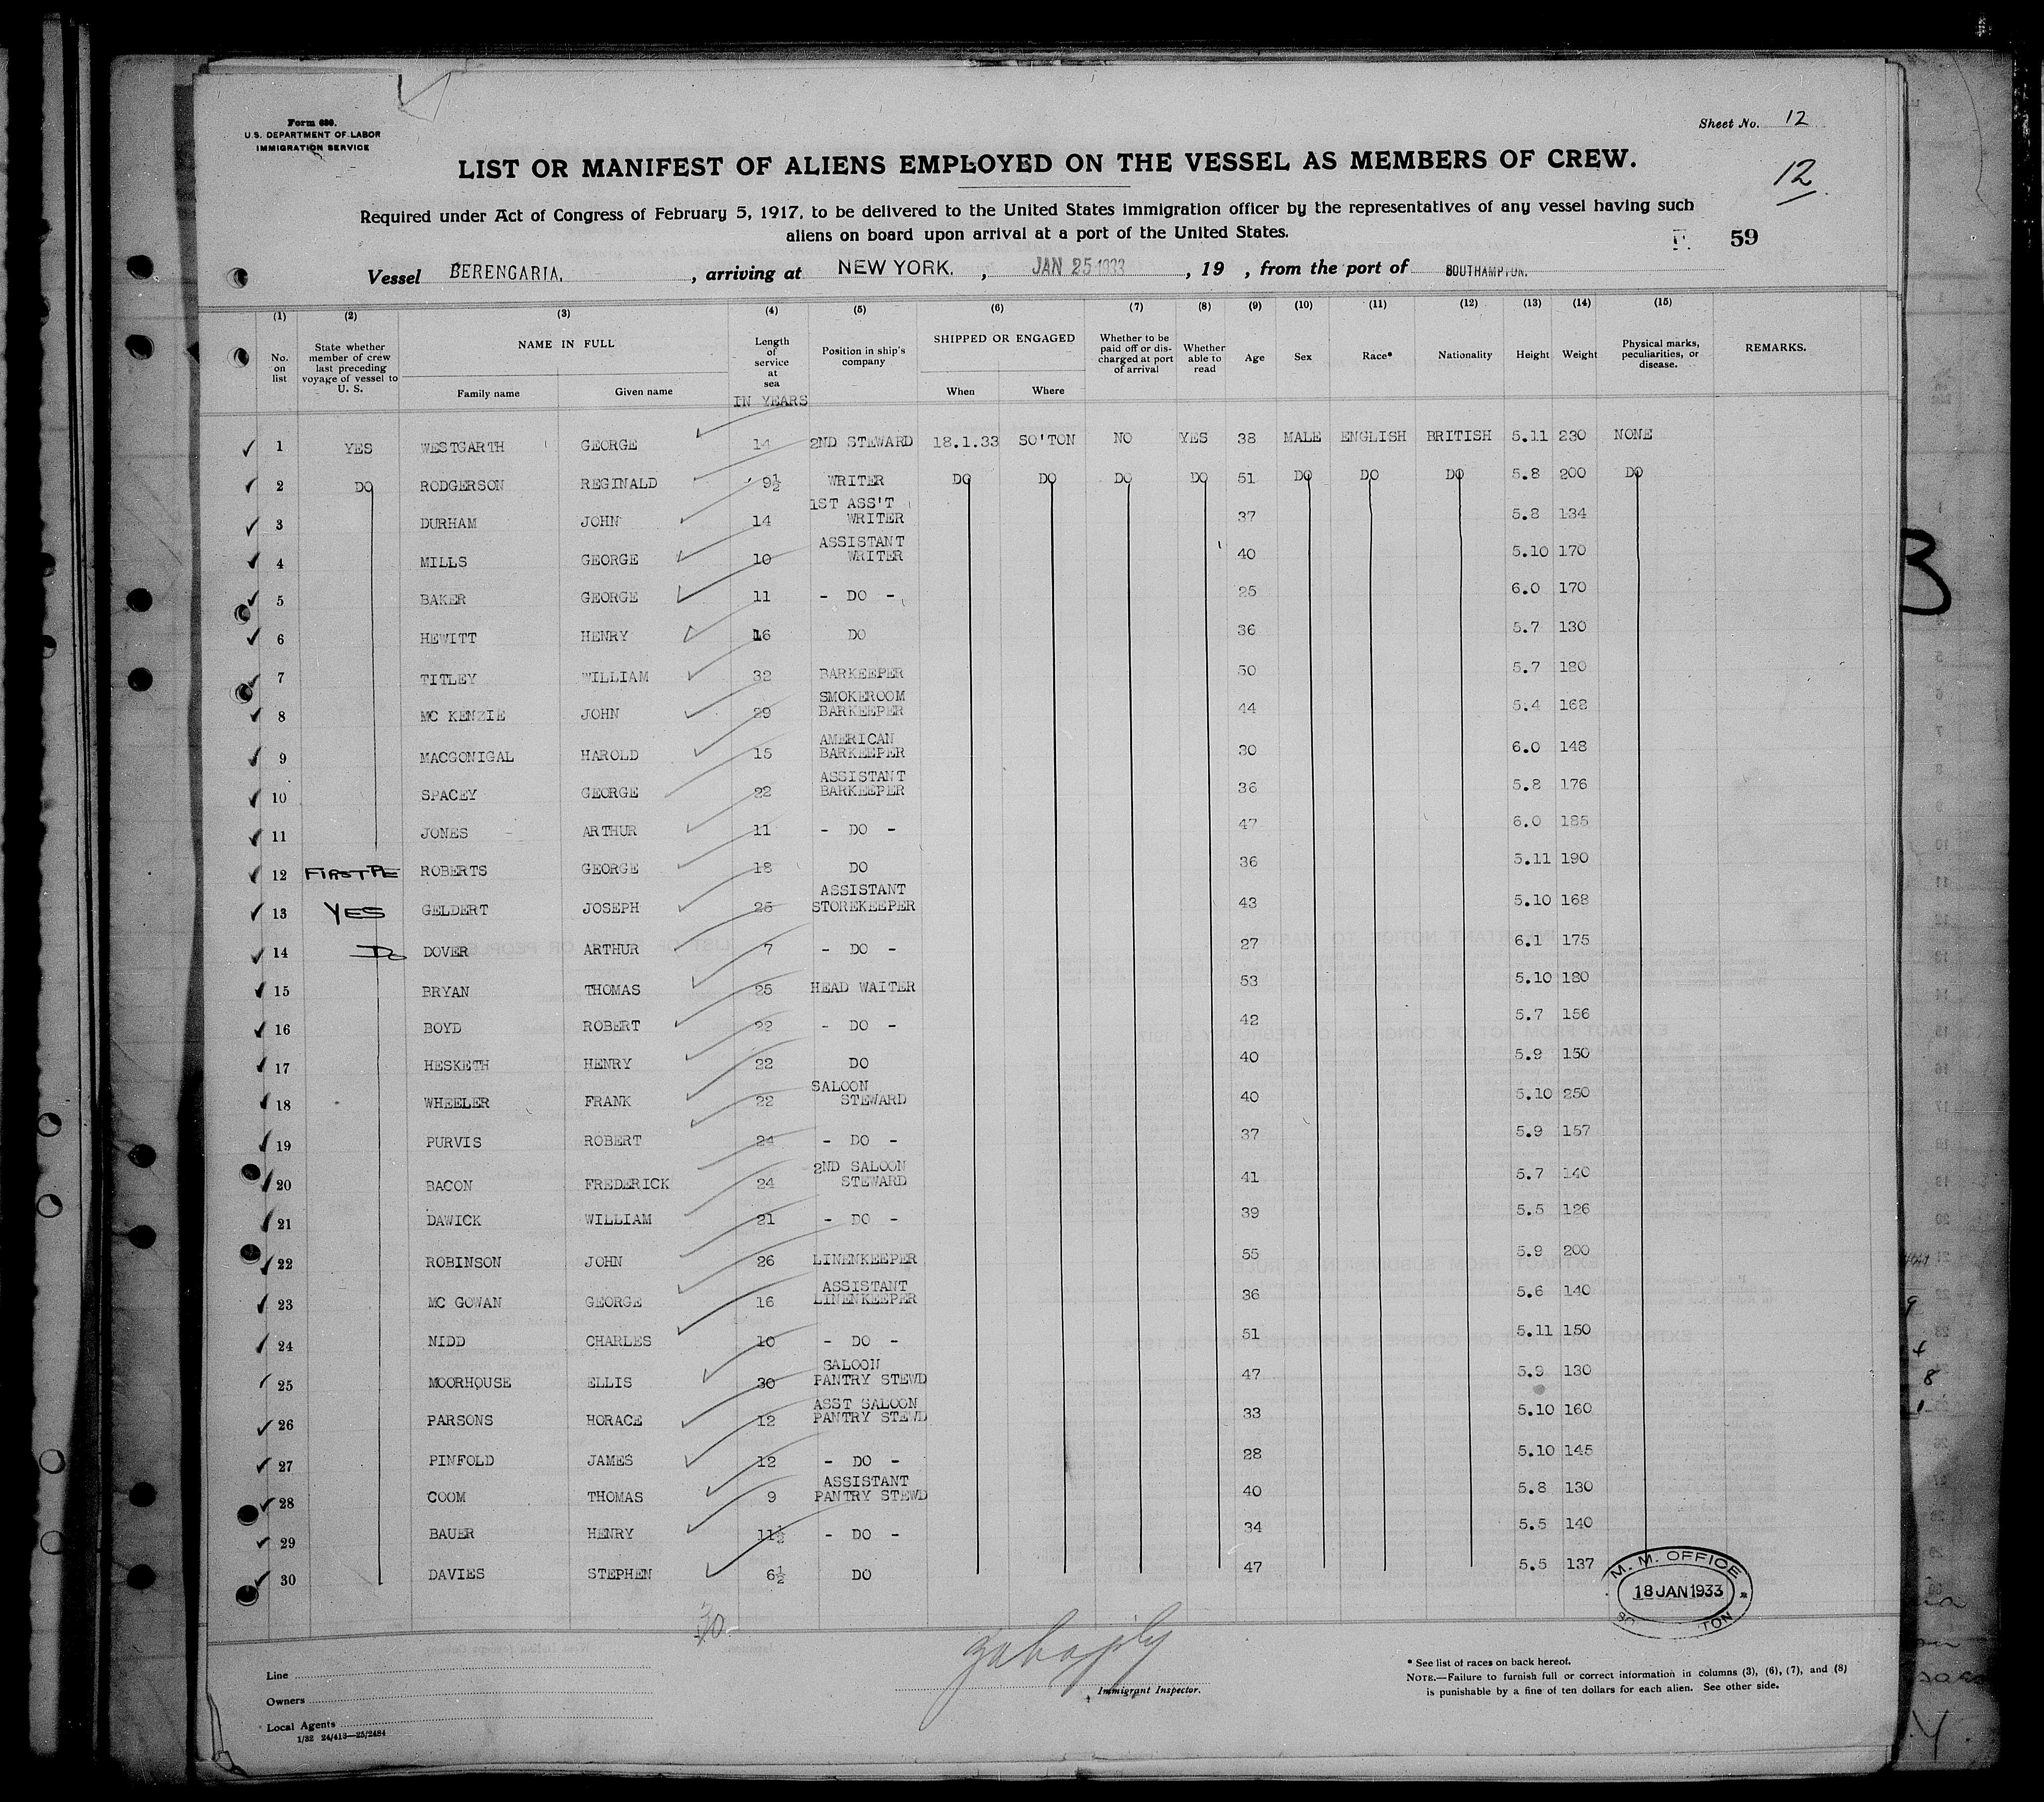 Form 680.
U.S. DEPARTMENT OF LABOR
IMMIGRATION SERVICE
Sheet No. 12
LIST OR MANIFEST OF ALIENS EMPLOYED ON THE VESSEL AS MEMBERS OF CREW.
12
Required under Act of Congress of February 5, 1917, to be delivered to the United States immigration officer by the representatives of any vessel having such
aliens on board upon arrival at a port of the United States.
59
Vessel BERENGARIA. , arriving at NEW YORK. , JAN 25 1933 , 19 , from the port of SOUTHAMPTON.
(1) (2) (3) (4) (5) (6) (7) (8) (9) (10) (11) (12) (13) (14) (15)
No. on list State whether member of crew last preceding voyage of vessel to U. S. NAME IN FULL Family name Given name Length of service at sea IN YEARS Position in ship's company SHIPPED OR ENGAGED When Where Whether to be paid off or discharged at port of arrival Whether able to read Age Sex Race* Nationality Height Weight Physical marks, peculiarities, or disease. REMARKS.
1 YES WESTGARTH GEORGE 14 2ND STEWARD 18.1.33 SO'TON NO YES 38 MALE ENGLISH BRITISH 5.11 230 NONE
2 DO RODGERSON REGINALD 9½ WRITER DO DO DO DO 51 DO DO DO 5.8 200 DO
3 DURHAM JOHN 14 1ST ASS'T WRITER 37 5.8 134
4 MILLS GEORGE 10 ASSISTANT WRITER 40 5.10 170
5 BAKER GEORGE 11 - DO - 25 6.0 170
6 HEWITT HENRY 16 DO 36 5.7 130
7 TITLEY WILLIAM 32 BARKEEPER 50 5.7 180
8 MC KENZIE JOHN 29 SMOKEROOM BARKEEPER 44 5.4 168
9 MACGONIGAL HAROLD 15 AMERICAN BARKEEPER 30 6.0 148
10 SPACEY GEORGE 22 ASSISTANT BARKEEPER 36 5.8 176
11 JONES ARTHUR 11 - DO - 47 6.0 185
12 ROBERTS GEORGE 18 DO 36 5.11 190
13 YES GELDERT JOSEPH 25 ASSISTANT STOREKEEPER 43 5.10 168
14 DO DOVER ARTHUR 7 - DO - 27 6.1 175
15 BRYAN THOMAS 25 HEAD WAITER 53 5.10 180
16 BOYD ROBERT 22 - DO - 42 5.7 156
17 HESKETH HENRY 22 DO 40 5.9 150
18 WHEELER FRANK 22 SALOON STEWARD 40 5.10 250
19 PURVIS ROBERT 24 - DO - 37 5.9 157
20 BACON FREDERICK 24 2ND SALOON STEWARD 41 5.7 140
21 DAWICK WILLIAM 21 - DO - 39 5.5 126
22 ROBINSON JOHN 26 LINENKEEPER 55 5.9 200
23 MC GOWAN GEORGE 16 ASSISTANT LINENKEEPER 36 5.6 140
24 NIDD CHARLES 10 - DO - 51 5.11 150
25 MOORHOUSE ELLIS 30 SALOON PANTRY STEWD 47 5.9 130
26 PARSONS HORACE 12 ASST SALOON PANTRY STEWD 33 5.10 160
27 PINFOLD JAMES 12 - DO - 28 5.10 145
28 COOM THOMAS 9 ASSISTANT PANTRY STEWD 40 5.8 130
29 BAUER HENRY 11½ - DO - 34 5.5 140
30 DAVIES STEPHEN 6½ DO 47 5.5 137
M. M. OFFICE
18 JAN 1933
30
Line
Owners
Local Agents
1/32 24/413—25/2484
Immigrant Inspector.
* See list of races on back hereof.
NOTE.—Failure to furnish full or correct information in columns (3), (6), (7), and (8)
is punishable by a fine of ten dollars for each alien. See other side.